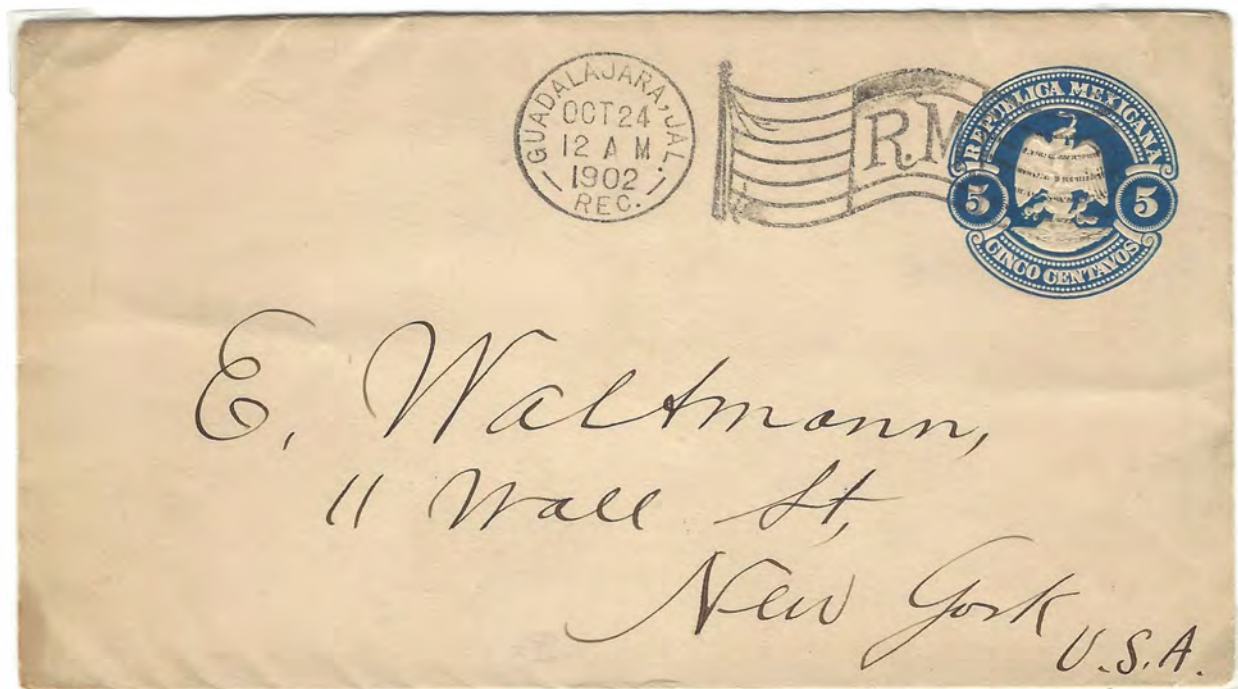 GUADALAJARA, JAL.
OCT 24
12 A M
1902
REC.
R.M
REPUBLICA MEXICANA
5 5
CINCO CENTAVOS
E. Waltmann,
11 Wall St,
New York
U.S.A.